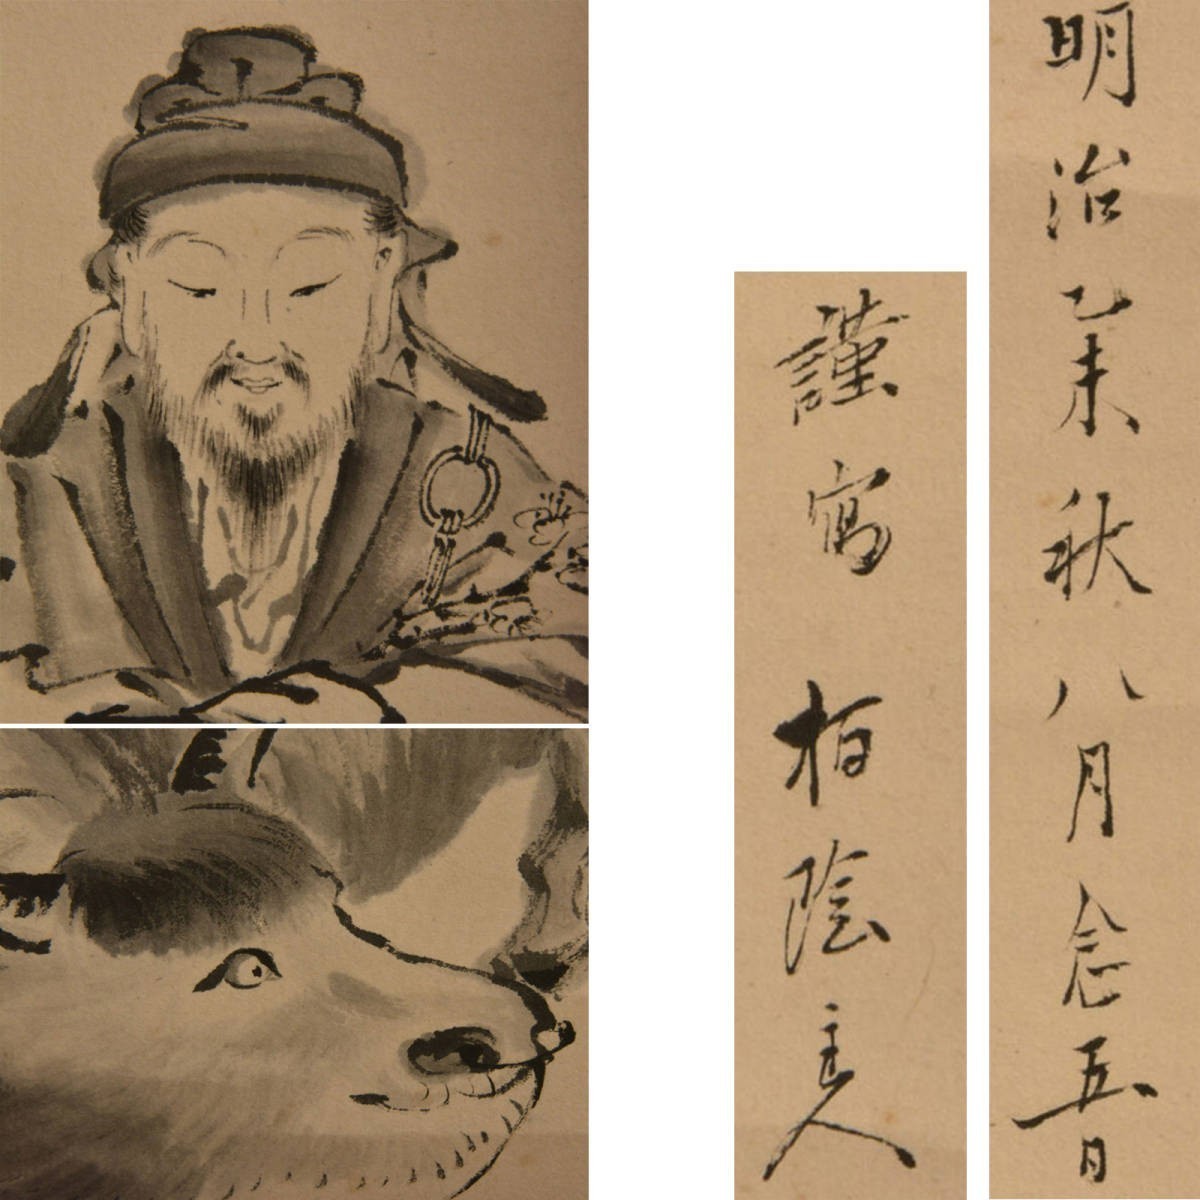 明治乙未秋八月念五日
謹寫 柏陰主人